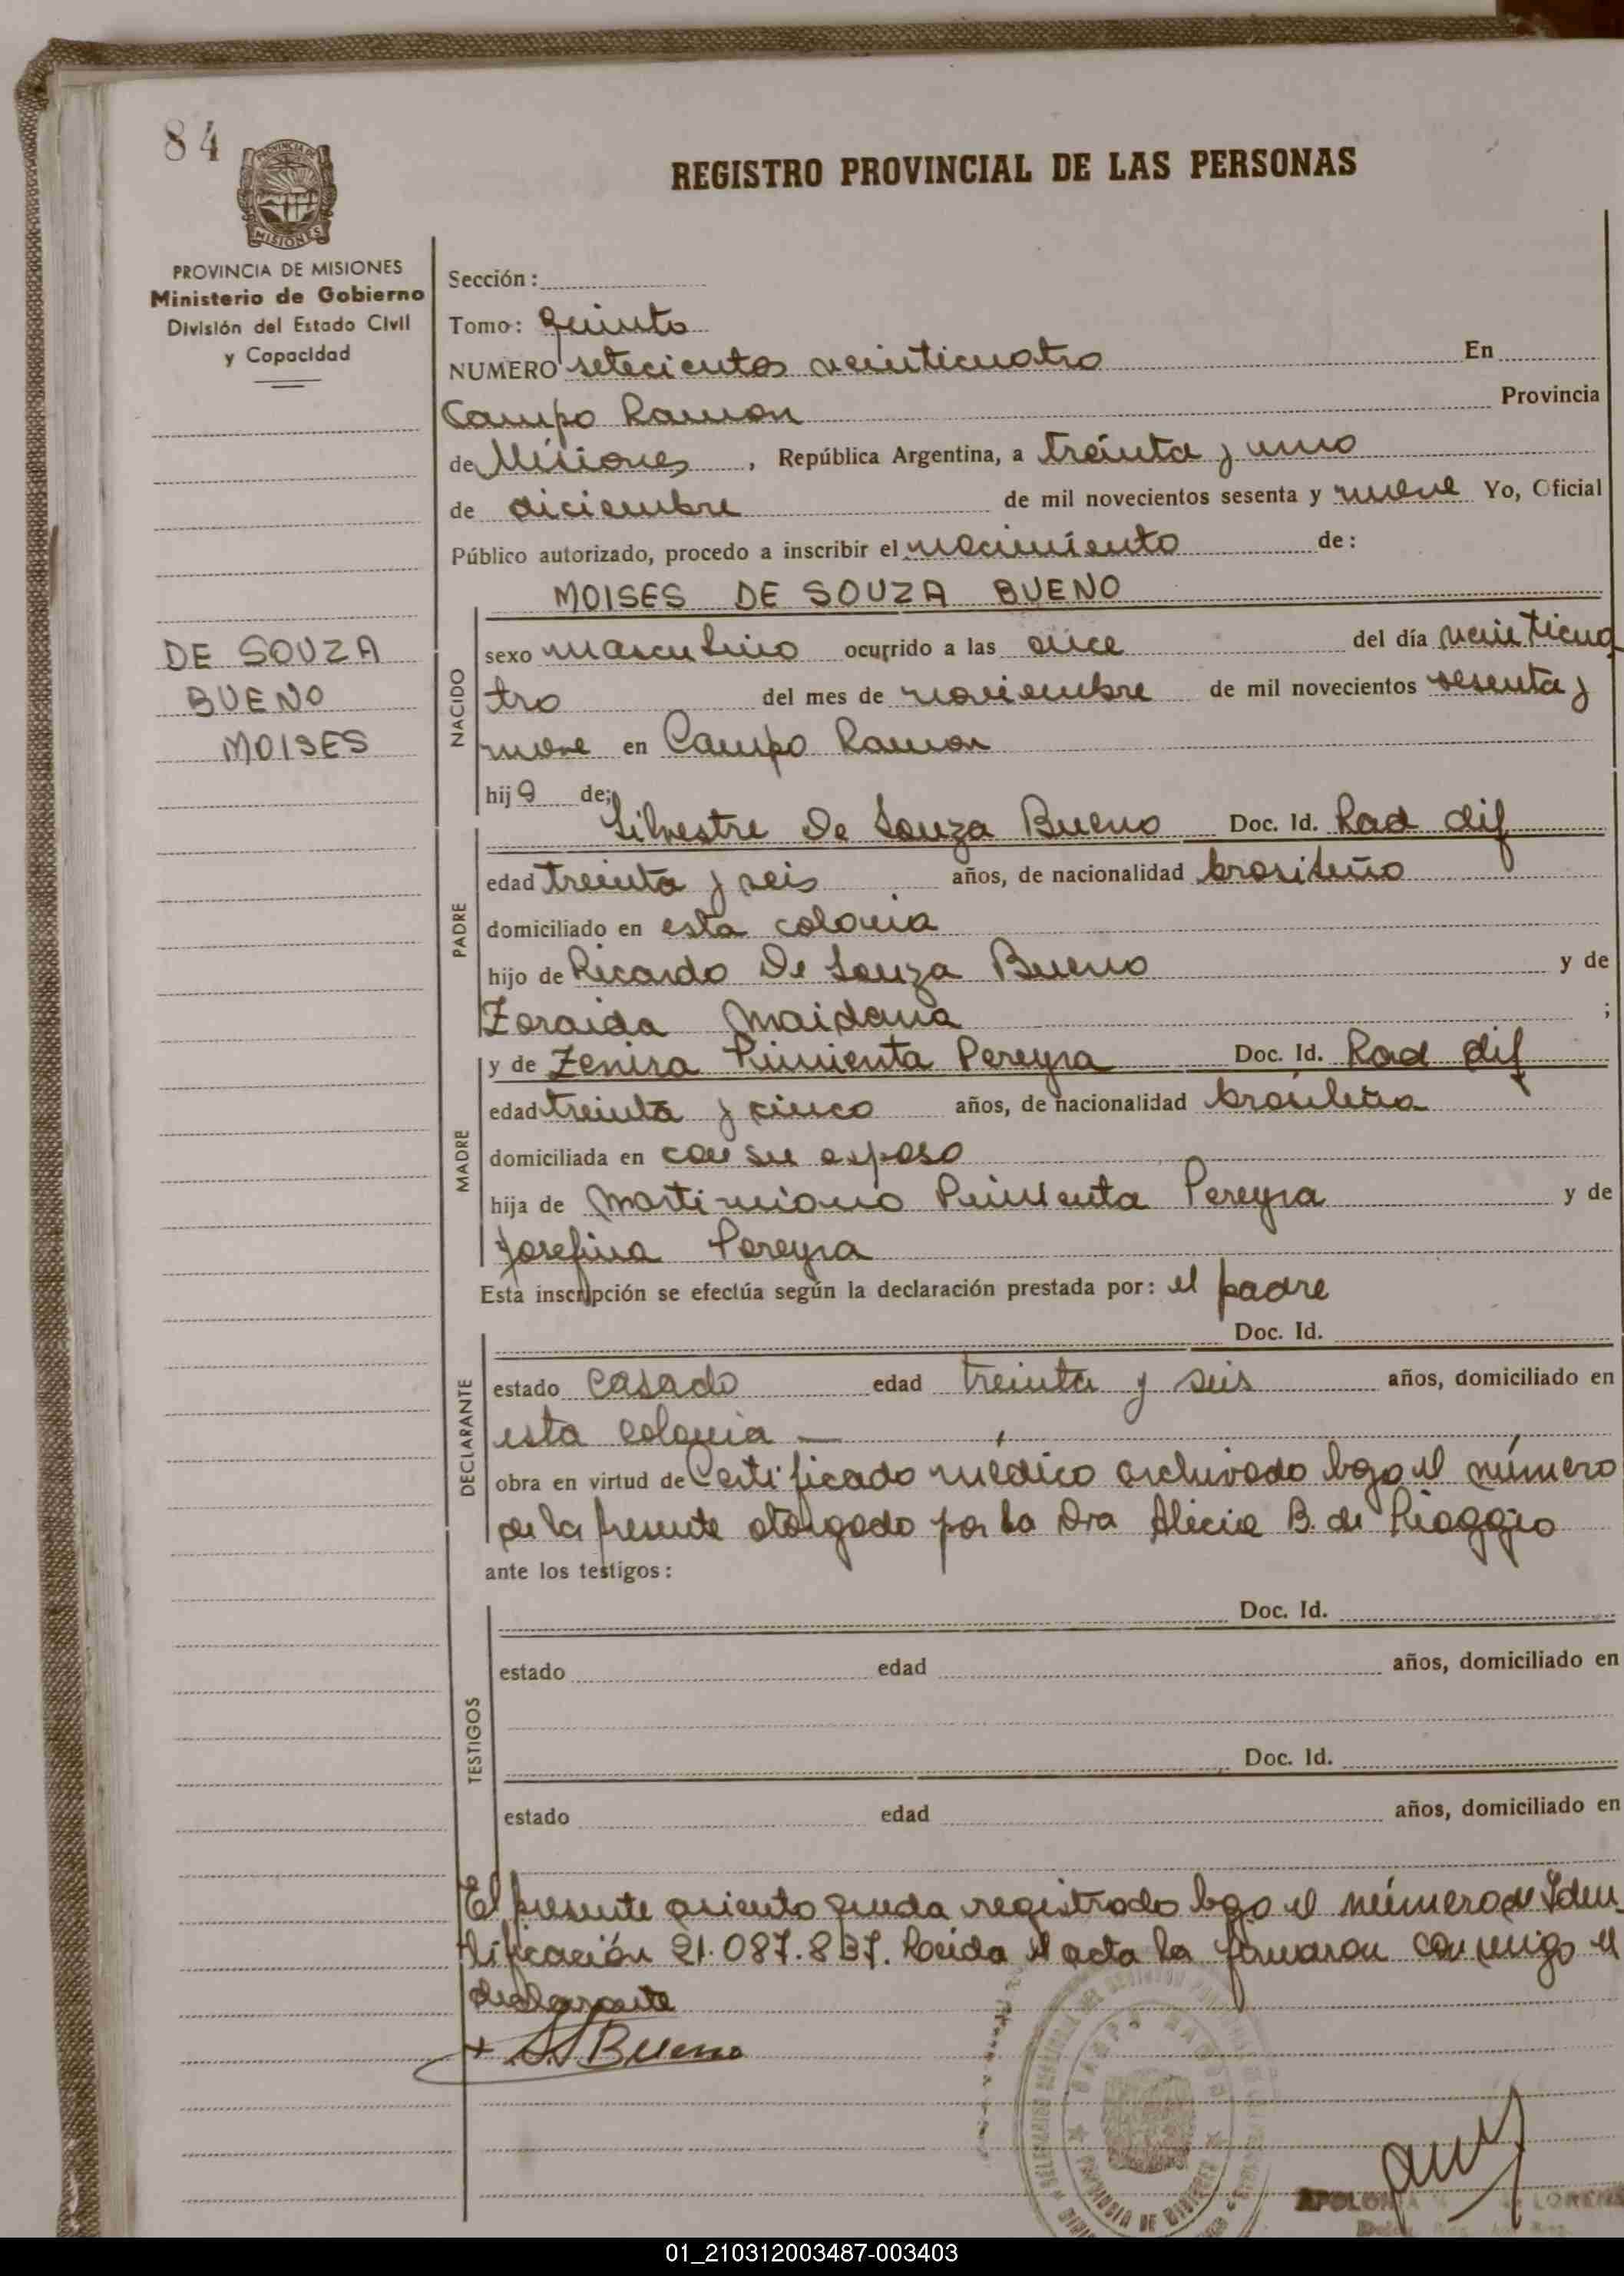 84
REGISTRO PROVINCIAL DE LAS PERSONAS
PROVINCIA DE MISIONES
Ministerio de Gobierno
División del Estado Civil
y Capacidad
Sección:
Tomo: quinto
NUMERO setecientos veinticuatro En
Campo Ramon Provincia
de Misiones, República Argentina, a treinta y uno
de diciembre de mil novecientos sesenta y nueve Yo, Oficial
Público autorizado, procedo a inscribir el nacimiento de:
MOISES DE SOUZA BUENO
DE SOUZA
BUENO
MOISES
NACIDO
sexo masculino ocurrido a las once del día veinticua
tro del mes de noviembre de mil novecientos sesenta y
nueve en Campo Ramon
hijo de;
PADRE
Silvestre De Souza Bueno Doc. Id. Rad dif
edad treinta y seis años, de nacionalidad brasileño
domiciliado en esta colonia
hijo de Ricardo De Souza Bueno y de
Zoraida Maidana ;
MADRE
y de Zenira Pimienta Pereyra Doc. Id. Rad dif
edad treinta y cinco años, de nacionalidad brasileña
domiciliada en con su esposo
hija de Martimiano Pimienta Pereyra y de
Josefina Pereyra
Esta inscripción se efectúa según la declaración prestada por: el padre
Doc. Id.
DECLARANTE
estado casado edad treinta y seis años, domiciliado en
esta colonia
obra en virtud de Certificado médico archivado bajo el número
de la presente otorgado por la Dra Alicia B. de Piaggio
ante los testigos:
TESTIGOS
Doc. Id.
estado edad años, domiciliado en
Doc. Id.
estado edad años, domiciliado en
El presente asiento queda registrado bajo el número de Iden
tificación 21.087.837. Leida el acta la firmaron conmigo el
declarante
Bueno
CAMPO RAMON
PROVINCIA DE MISIONES
APOLONIA LORENZ
01_210312003487-003403